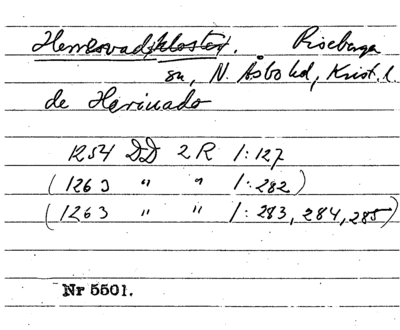 Herrevadskloster. Riseberga
sn, N. Åsbo hd, Krist. l.
de Herivado
1254 DD 2 R 1:127
(1263 " " 1:282)
(1263 " " 1:283, 284, 285)
Nr 5501.